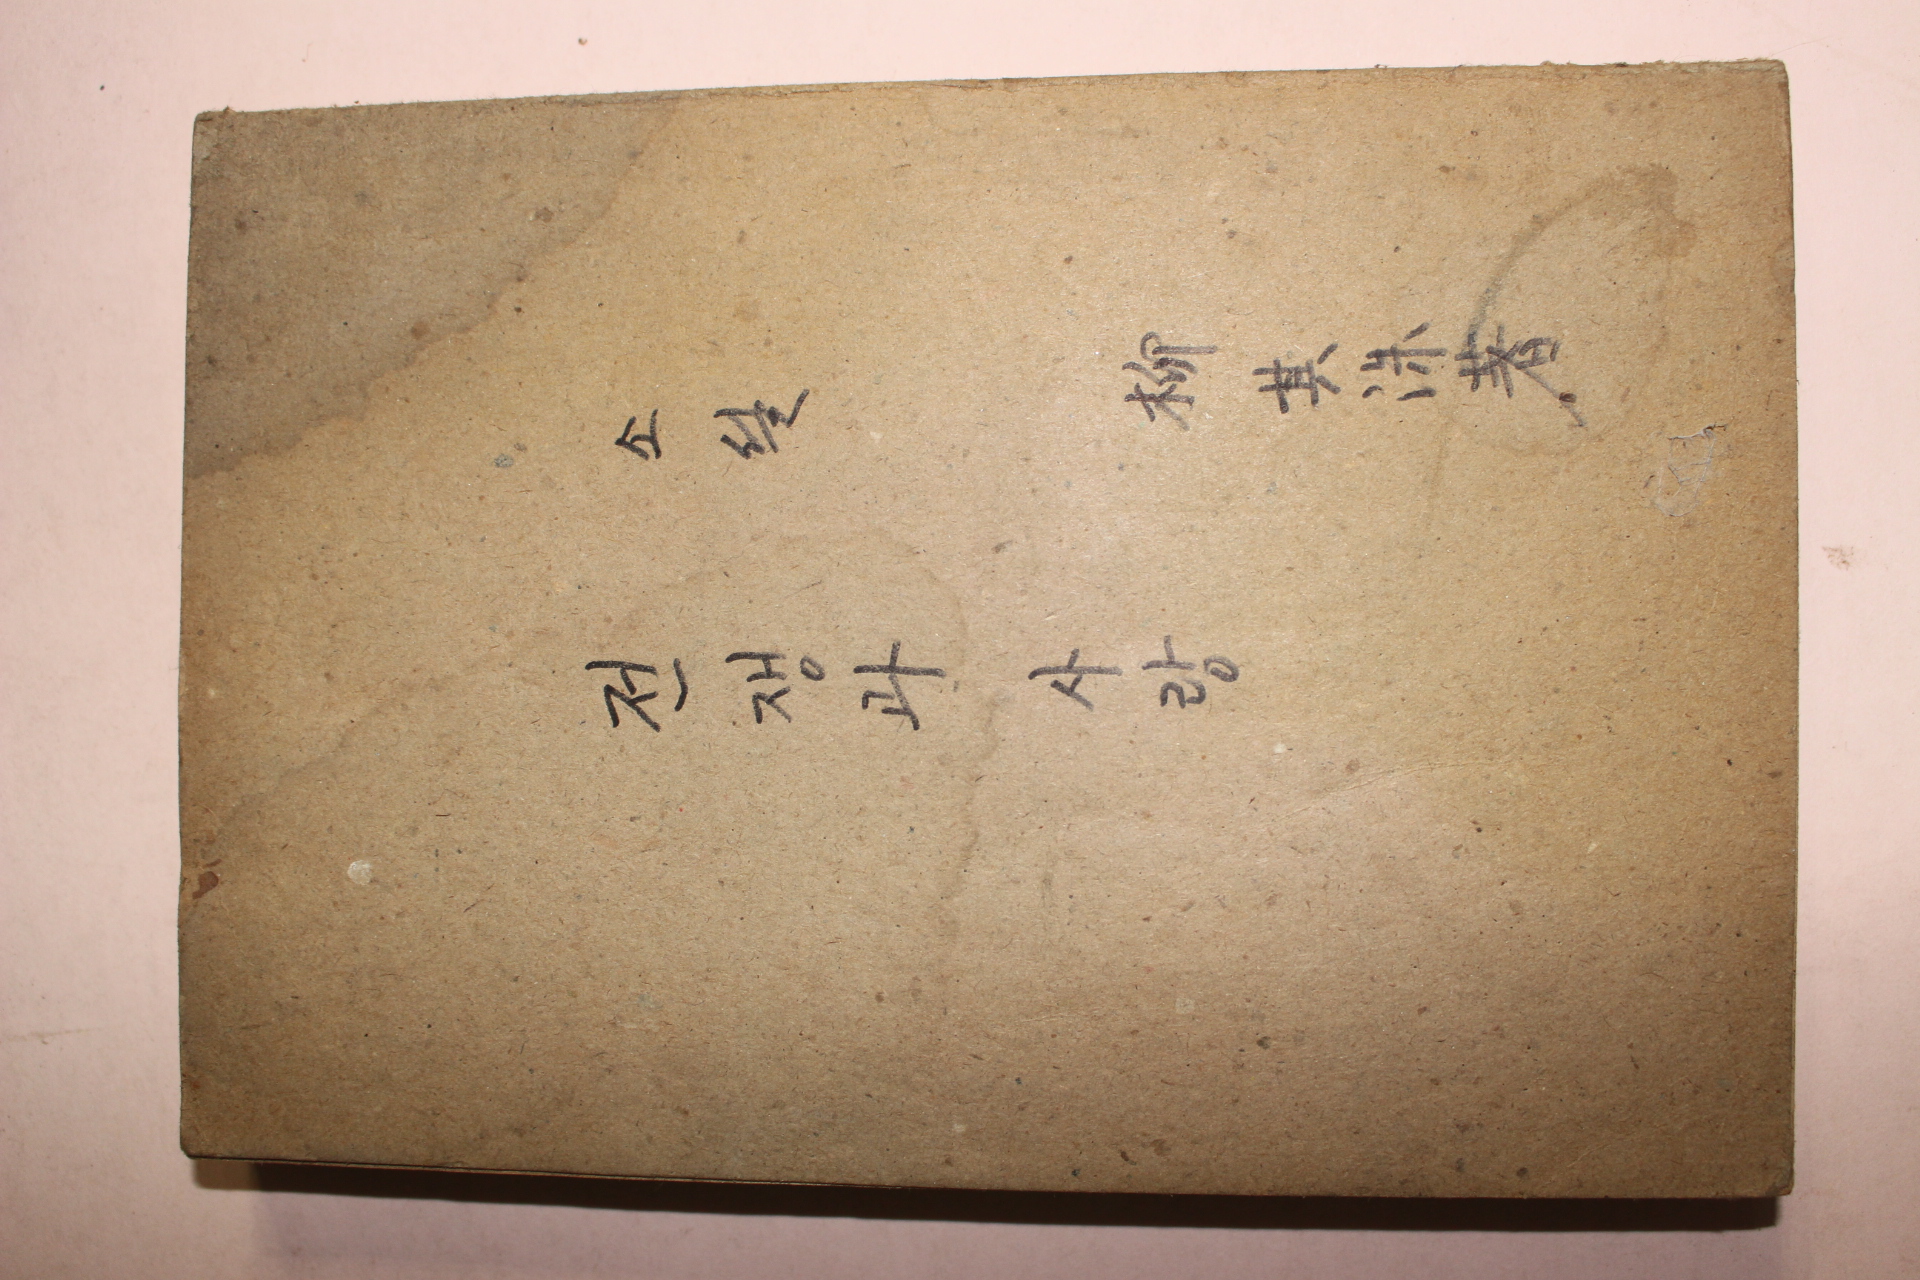 소설 柳其洙著
전쟁과 사랑